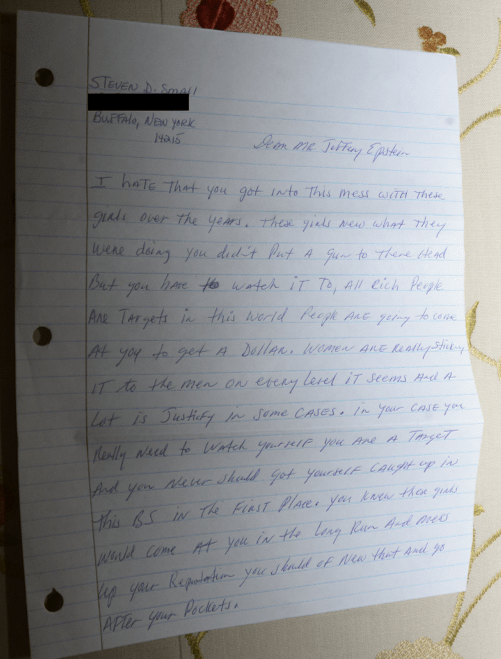 STEVEN D. Small
BUFFAlo, NEW YORK
14215
Dear MR Jeffery Epstein
I hATE THAT you got into This mess with these
girls over the YEARS. These girls New what they
Were doing you didn't Put A Gun to There Head
But you have to watch iT To, All Rich People
Are TArgets in this World People ARE going to come
AT you to get A Dollar. Women ARE Really Sticking
IT to the men on every level iT seems And A
Lot is Justify in Some CASES. in your CASE you
Really Need to WAtch yourself you Are A TARgeT
And you Never should Got yourself CAught up in
This BS in The First Place. you knew these girls
Would come At you in the Long Run And
up your Reputation you should of New that And go
AFTer your Pockets.